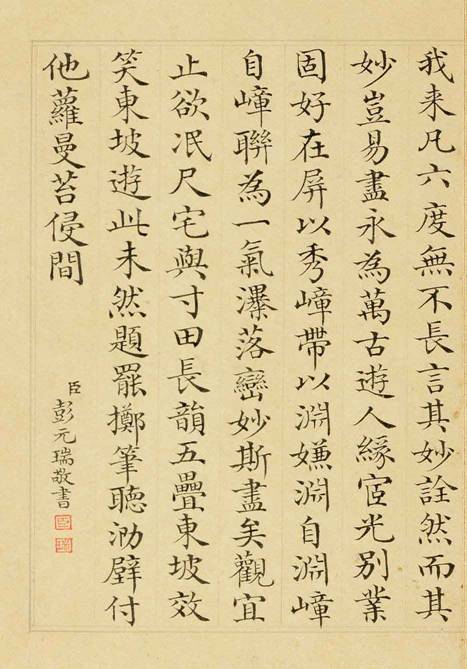 我来凡六度無不長言其妙詮然而其
妙豈易盡永為萬古遊人緣宧光別業
固好在屏以秀嶂帶以淵嫌淵自淵嶂
自嶂聯為一氣瀑落巒妙斯盡矣觀宜
止欲冺尺宅與寸田長韻五疊東坡效
笑東坡遊此未然題罷擲筆聽泐壁付
他蘿曼苔侵間
臣彭元瑞敬書